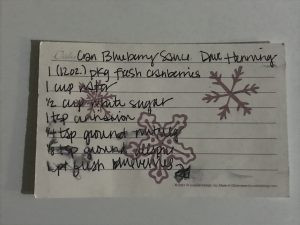 Cran Blueberry Sauce Dave Henning
1 (12oz.) pkg fresh cranberries
1 cup water
1/2 cup white sugar
1 tsp cinnamon
1/4 tsp ground nutmeg
1/8 tsp ground allspice
1 pt fresh blueberries